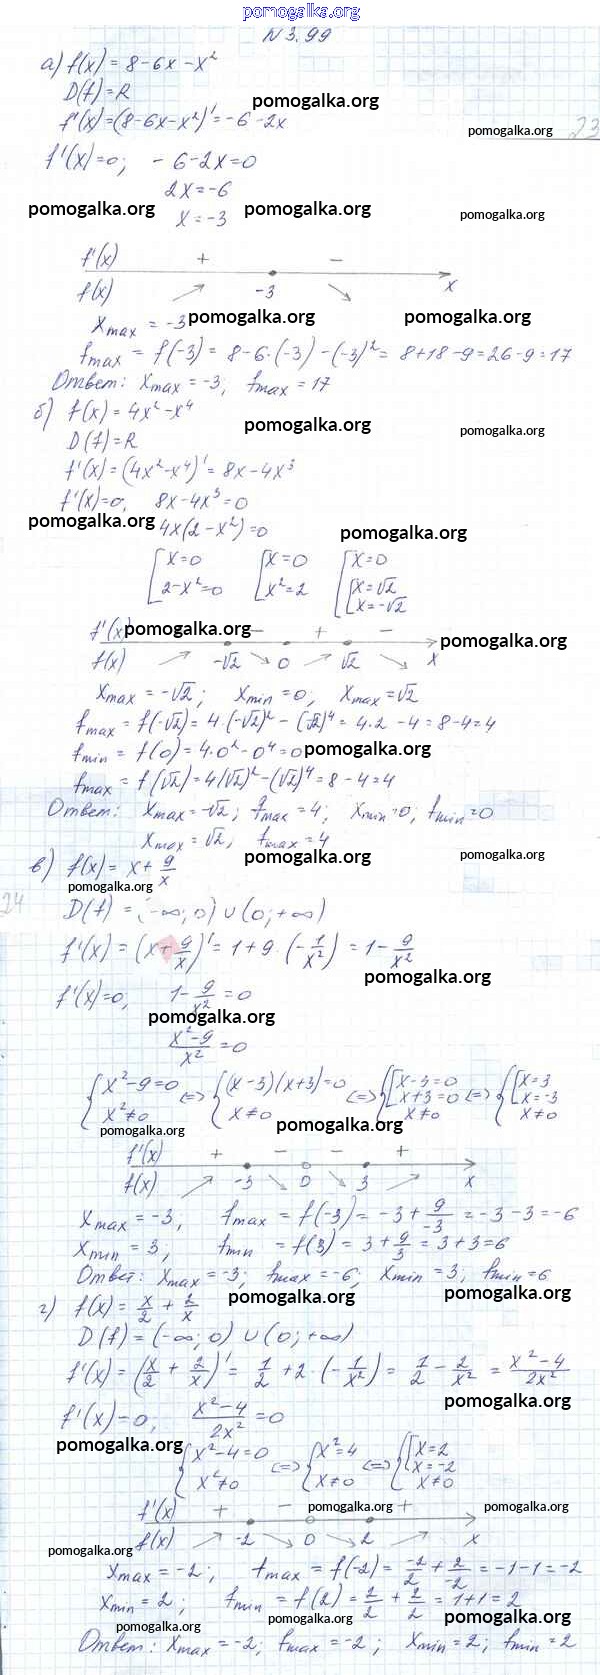 pomogalka.org
N 3.99
а) f(x) = 8-6x-x²
D(f)=R
pomogalka.org
f'(x)=(8-6x-x²)'=-6-2x
pomogalka.org 23
f'(x)=0; -6-2x=0
2x=-6
pomogalka.org pomogalka.org pomogalka.org
x=-3
f'(x) + -
f(x) -3 x
x max = -3 pomogalka.org pomogalka.org
f max = f(-3) = 8-6·(-3)-(-3)² = 8+18-9=26-9=17
Ответ: x max = -3; f max = 17
б) f(x) = 4x²-x⁴
pomogalka.org pomogalka.org
D(f)=R
f'(x)=(4x²-x⁴)'=8x-4x³
f'(x)=0, 8x-4x³=0
pomogalka.org 4x(2-x²)=0 pomogalka.org
[x=0 [x=0 [x=0
2-x²=0 x²=2 [x=√2
x=-√2
f'(x) pomogalka.org - + - pomogalka.org
f(x) -√2 0 √2 x
x max = -√2; x min = 0, x max = √2
f max = f(-√2) = 4·(-√2)² - (√2)⁴ = 4·2-4=8-4=4
f min = f(0) = 4·0²-0⁴=0 pomogalka.org
f max = f(√2) = 4(√2)²-(√2)⁴=8-4=4
Ответ: x max = -√2; f max = 4; x min = 0; f min = 0
x max = √2; f max = 4
pomogalka.org
в) f(x) = x + 9/x
pomogalka.org
24
D(f) = (-∞;0) ∪ (0;+∞)
f'(x) = (x+9/x)' = 1+9·(-1/x²) = 1-9/x²
pomogalka.org
f'(x)=0, 1-9/x²=0
pomogalka.org
x²-9/x²=0
{x²-9=0 <=> {(x-3)(x+3)=0 <=> {[x-3=0 <=> {[x=3
x+3=0 x=-3
x²≠0 x≠0 x≠0 x≠0
pomogalka.org pomogalka.org
f'(x) + - - +
f(x) -3 0 3 x
x max = -3, f max = f(-3) = -3+9/-3 = -3-3=-6
x min = 3, f min = f(3) = 3+9/3 = 3+3=6
Ответ: x max = -3; f max = -6; x min = 3; f min = 6
pomogalka.org pomogalka.org
г) f(x) = x/2 + 2/x
D(f) = (-∞;0) ∪ (0;+∞)
f'(x) = (x/2 + 2/x)' = 1/2 + 2·(-1/x²) = 1/2 - 2/x² = x²-4/2x²
pomogalka.org
f'(x)=0, x²-4/2x²=0
pomogalka.org
{x²-4=0 <=> {x²=4 <=> {[x=2
x=-2
x²≠0 x≠0 x≠0
f'(x) + - pomogalka.org + pomogalka.org
f(x) -2 0 2 x
pomogalka.org
x max = -2; f max = f(-2) = -2/2 + 2/-2 = -1-1=-2
x min = 2; f min = f(2) = 2/2 + 2/2 = 1+1=2
pomogalka.org pomogalka.org pomogalka.org
Ответ: x max = -2; f max = -2; x min = 2; f min = 2